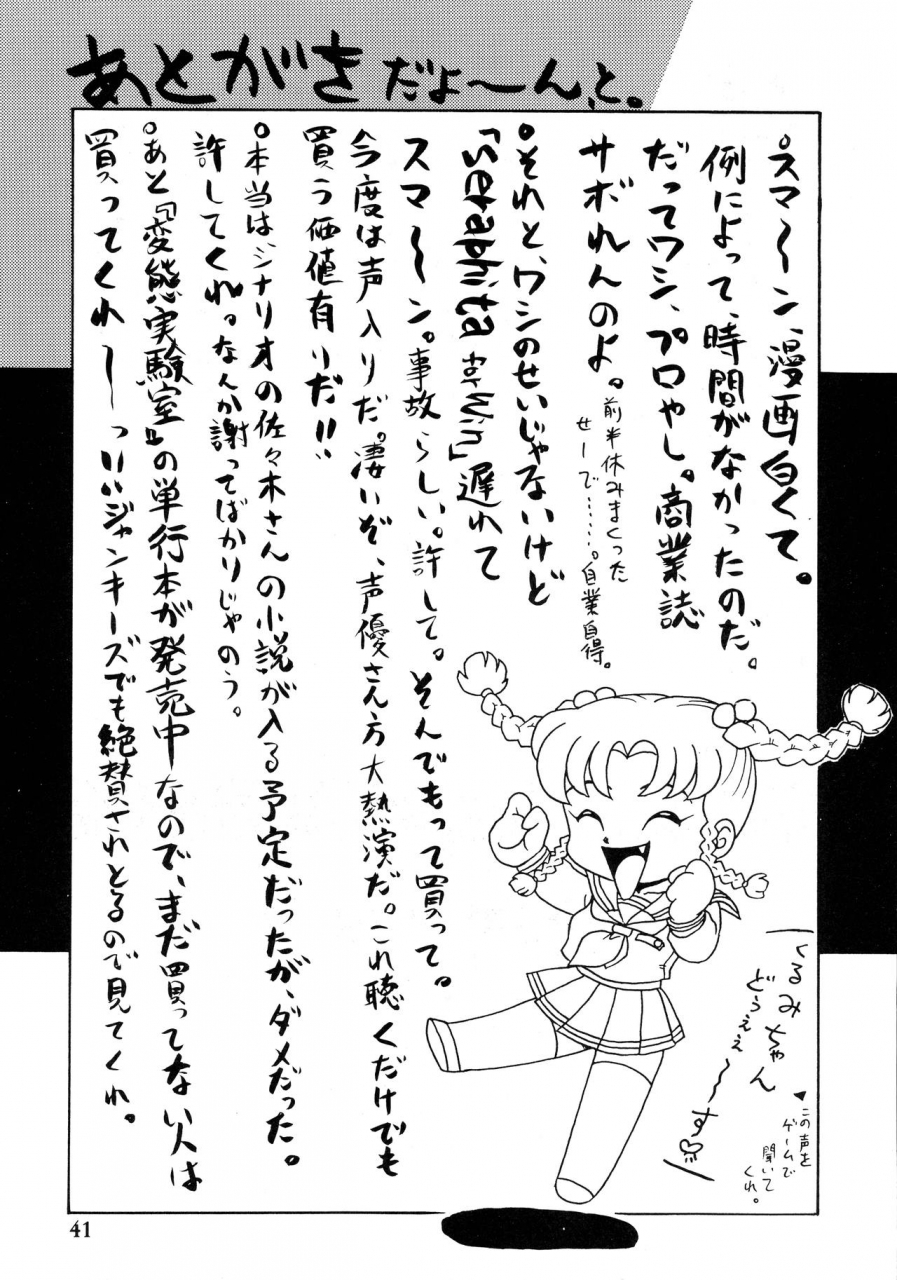 あとがきだよ〜ん、と。
。スマ〜〜ン、漫画白くて。
例によって、時間がなかったのだ。
だってワシ、プロやし。商業誌
サボれんのよ。
前半休みまくった
せーで……。自業自得。
。それと、ワシのせいじゃないけど
「Setabhita for Win」遅れて
スマ〜〜ン。事故らしい。許して。そんでもって買って。
今度は声入りだ。凄いぞ、声優さん方大熱演だ。これ聴くだけでも
買う価値有りだ!!
。本当はシナリオの佐々木さんの小説が入る予定だったが、ダメだった。
許してくれ。なんか謝ってばかりじゃのう。
。あと『変態実験室』の単行本が発売中なので、まだ買ってない人は
買ってくれ〜〜っ!!ジャンキーズでも絶賛されとるので見てくれ。
くるみちゃん
どうぇぇ〜〜す♡
この声を
ゲームで
聞いて
くれ。
41